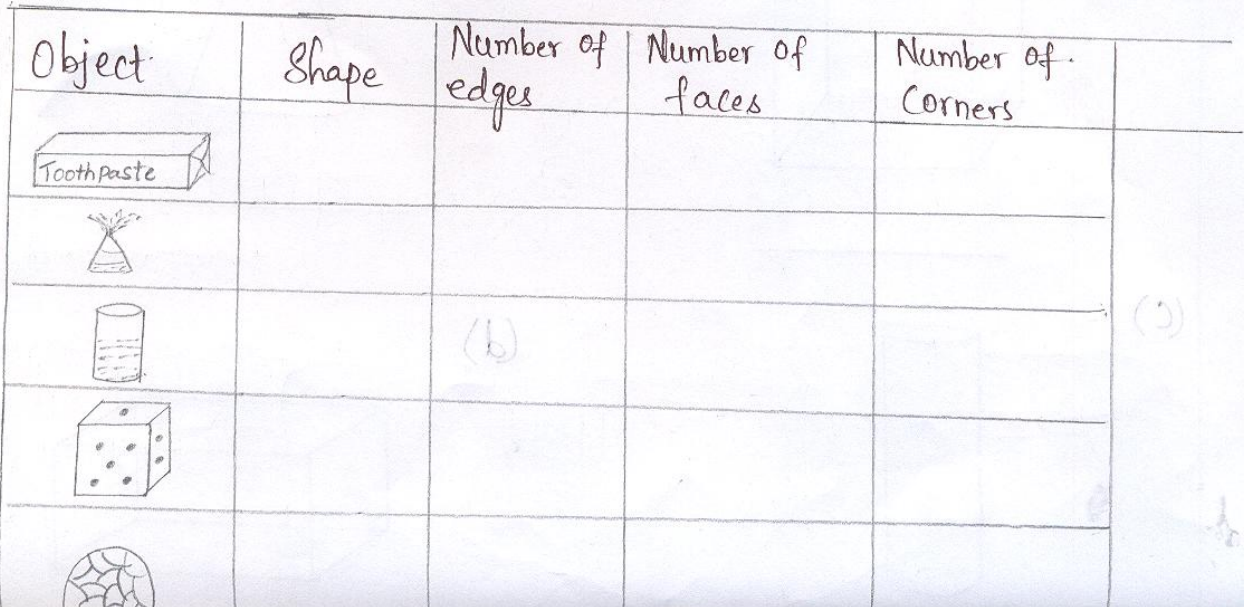 Object
Shape
Number of
edges
Number of
faces
Number of.
Corners
Toothpaste